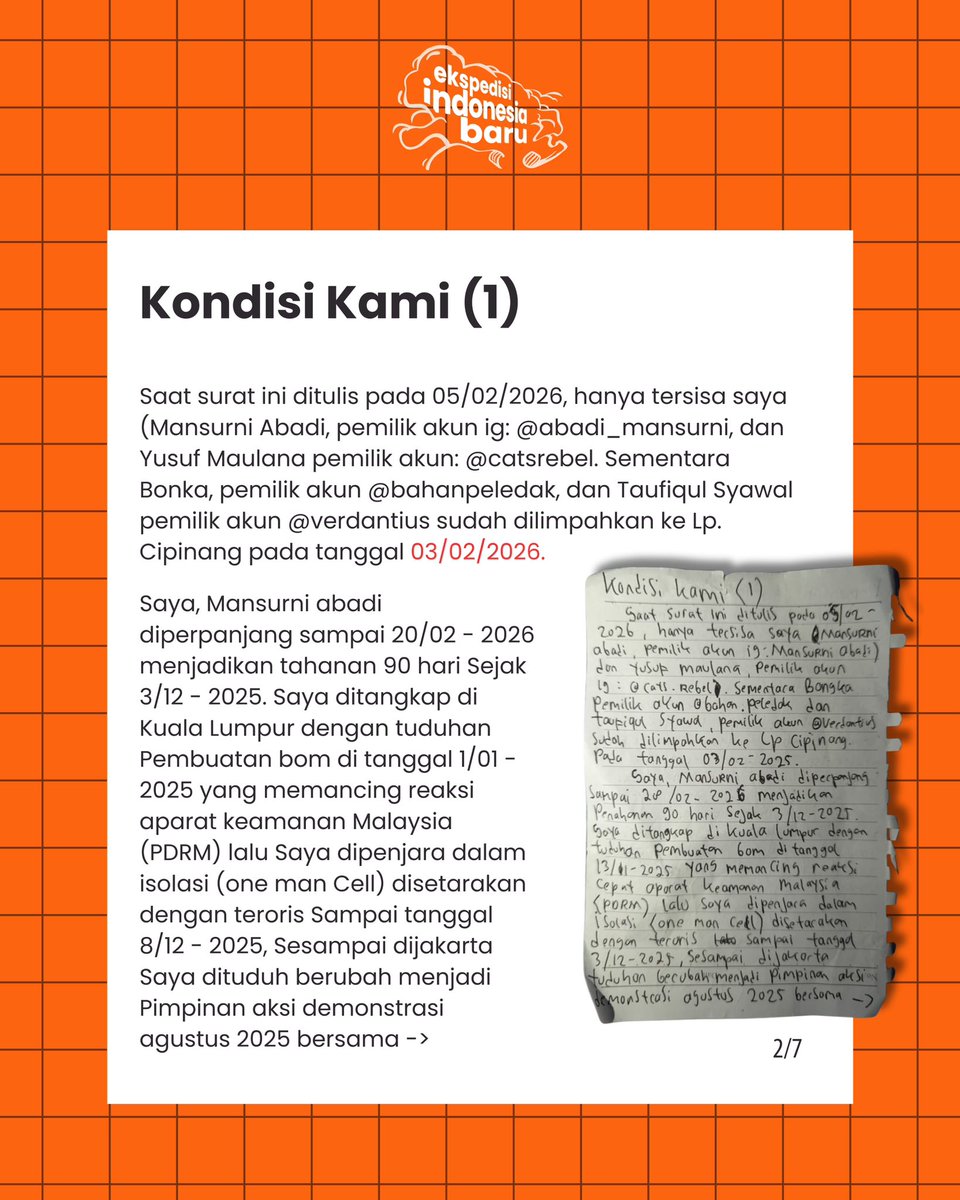 ekspedisi
indonesia
baru
Kondisi Kami (1)
Saat surat ini ditulis pada 05/02/2026, hanya tersisa saya
(Mansurni Abadi, pemilik akun ig: @abadi_mansurni, dan
Yusuf Maulana pemilik akun: @catsrebel. Sementara
Bonka, pemilik akun @bahanpeledak, dan Taufiqul Syawal
pemilik akun @verdantius sudah dilimpahkan ke Lp.
Cipinang pada tanggal 03/02/2026.
Saya, Mansurni abadi
diperpanjang sampai 20/02 - 2026
menjadikan tahanan 90 hari Sejak
3/12 - 2025. Saya ditangkap di
Kuala Lumpur dengan tuduhan
Pembuatan bom di tanggal 1/01 -
2025 yang memancing reaksi
aparat keamanan Malaysia
(PDRM) lalu Saya dipenjara dalam
isolasi (one man Cell) disetarakan
dengan teroris Sampai tanggal
8/12 - 2025, Sesampai dijakarta
Saya dituduh berubah menjadi
Pimpinan aksi demonstrasi
agustus 2025 bersama ->
Kondisi kami (1)
Saat surat ini ditulis pada 05/02-
2026, hanya tersisa saya (Mansurni
abadi, pemilik akun ig: Mansurni abadi)
dan Yusup maulana, pemilik akun
ig: @cats.rebel). Sementara Bangka
Pemilik akun @bahan.peledak dan
taupiqul Syawal, pemilik akun @verdantius
Sudah dilimpahkan ke Lp Cipinang.
Pada tanggal 03/02-2025.
Saya, Mansurni abadi diperpanjang
sampai 20/02-2026 menjadikan
Penahanan 90 hari Sejak 3/12-2025.
Saya ditangkap di Kuala lumpur dengan
tuduhan pembuatan bom di tanggal
13/11-2025 yang memancing reaksi
cepat aparat keamanan malaysia
(PDRM) lalu saya dipenjara dalam
isolasi (one man Cell) disetarakan
dengan teroris sampai tanggal
3/12-2025, Sesampai dijakarta
tuduhan berubah menjadi Pimpinan aksi
demonstrasi agustus 2025 bersama ->
2/7